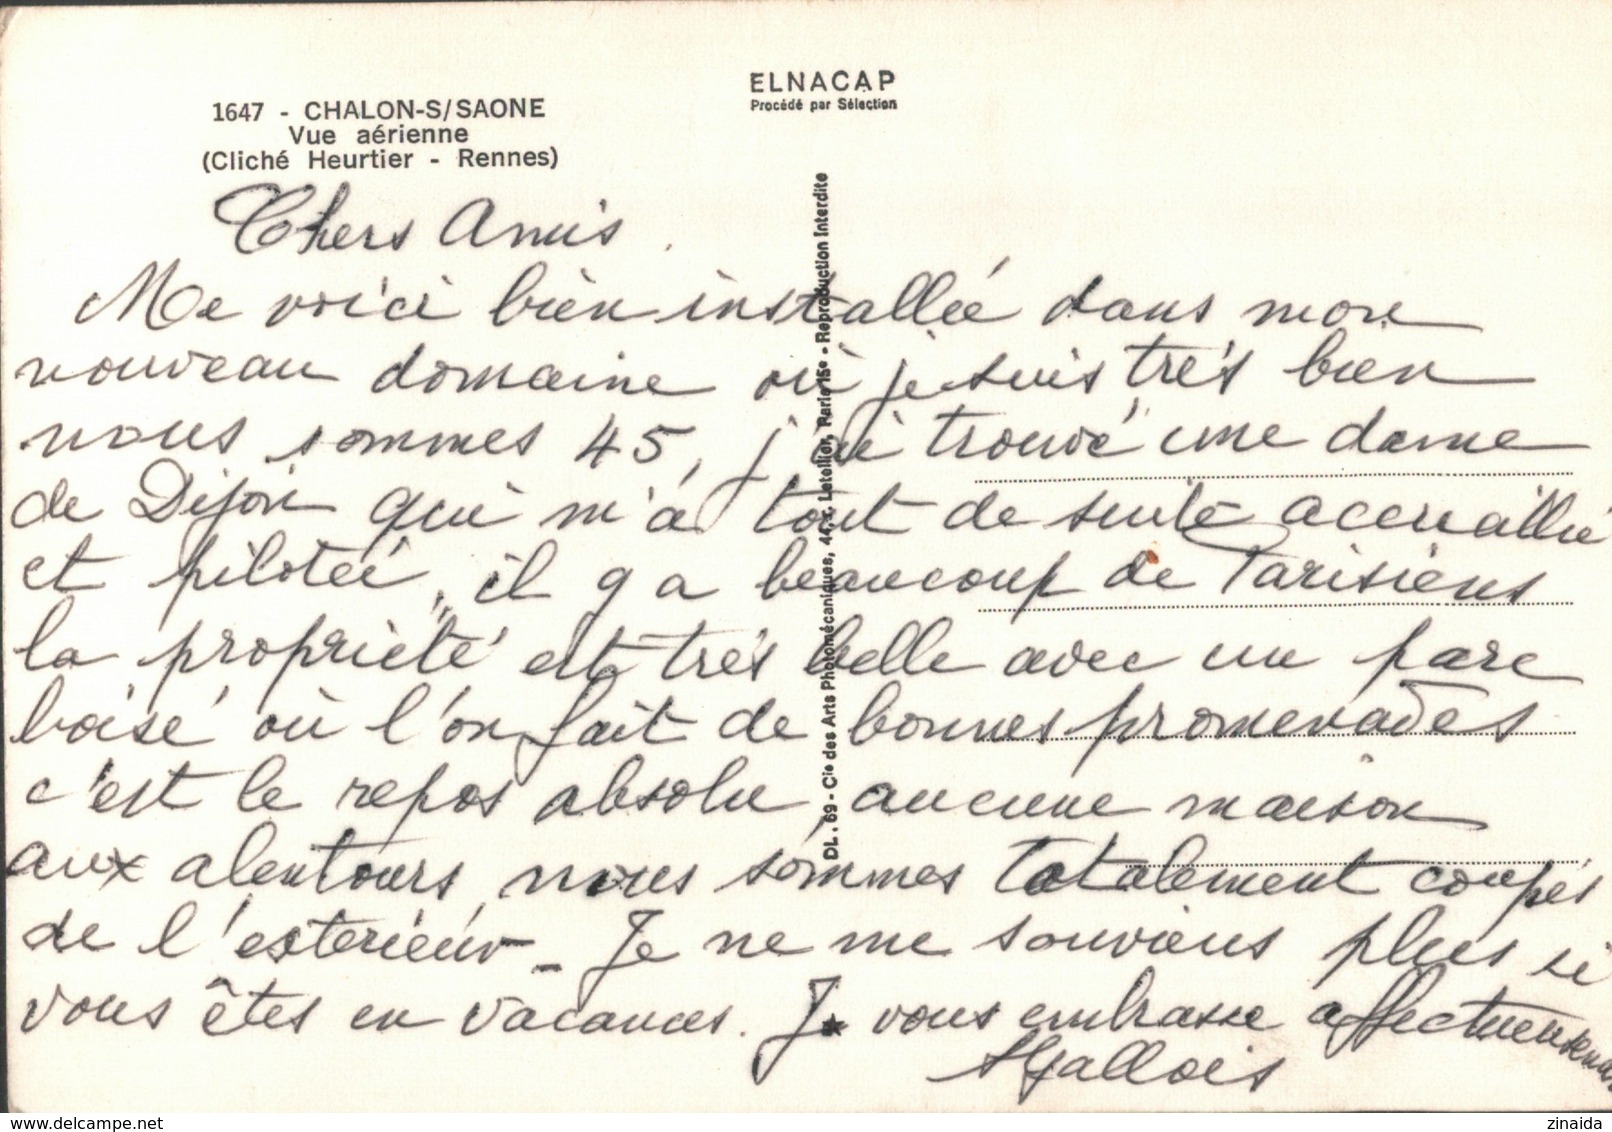 ELNACAP
Procédé par Sélection
1647 - CHALON-S/SAONE
Vue aérienne
(Cliché Heurtier - Rennes)
Chers Amis
Me voici bien installée dans mon
nouveau domaine où je suis très bien
nous sommes 45, j'ai trouvé une dame
de Dijon qui m'a tout de suite accuaillie
et pilotée, il y a beaucoup de Parisiens
la propriété est très belle avec un parc
boisé où l'on fait de bonnes promenades
c'est le repos absolu, aucune maison
aux alentours, nous sommes totalement coupés
de l'exterieur - Je ne me souviens plus si
vous êtes en vacances. Je vous embrasse affectueusement
Gallois
DL. 69 - Cie des Arts Photomécaniques, 44, r. Letellier, Paris 15e - Reproduction Interdite
delcampe.net
zinaida